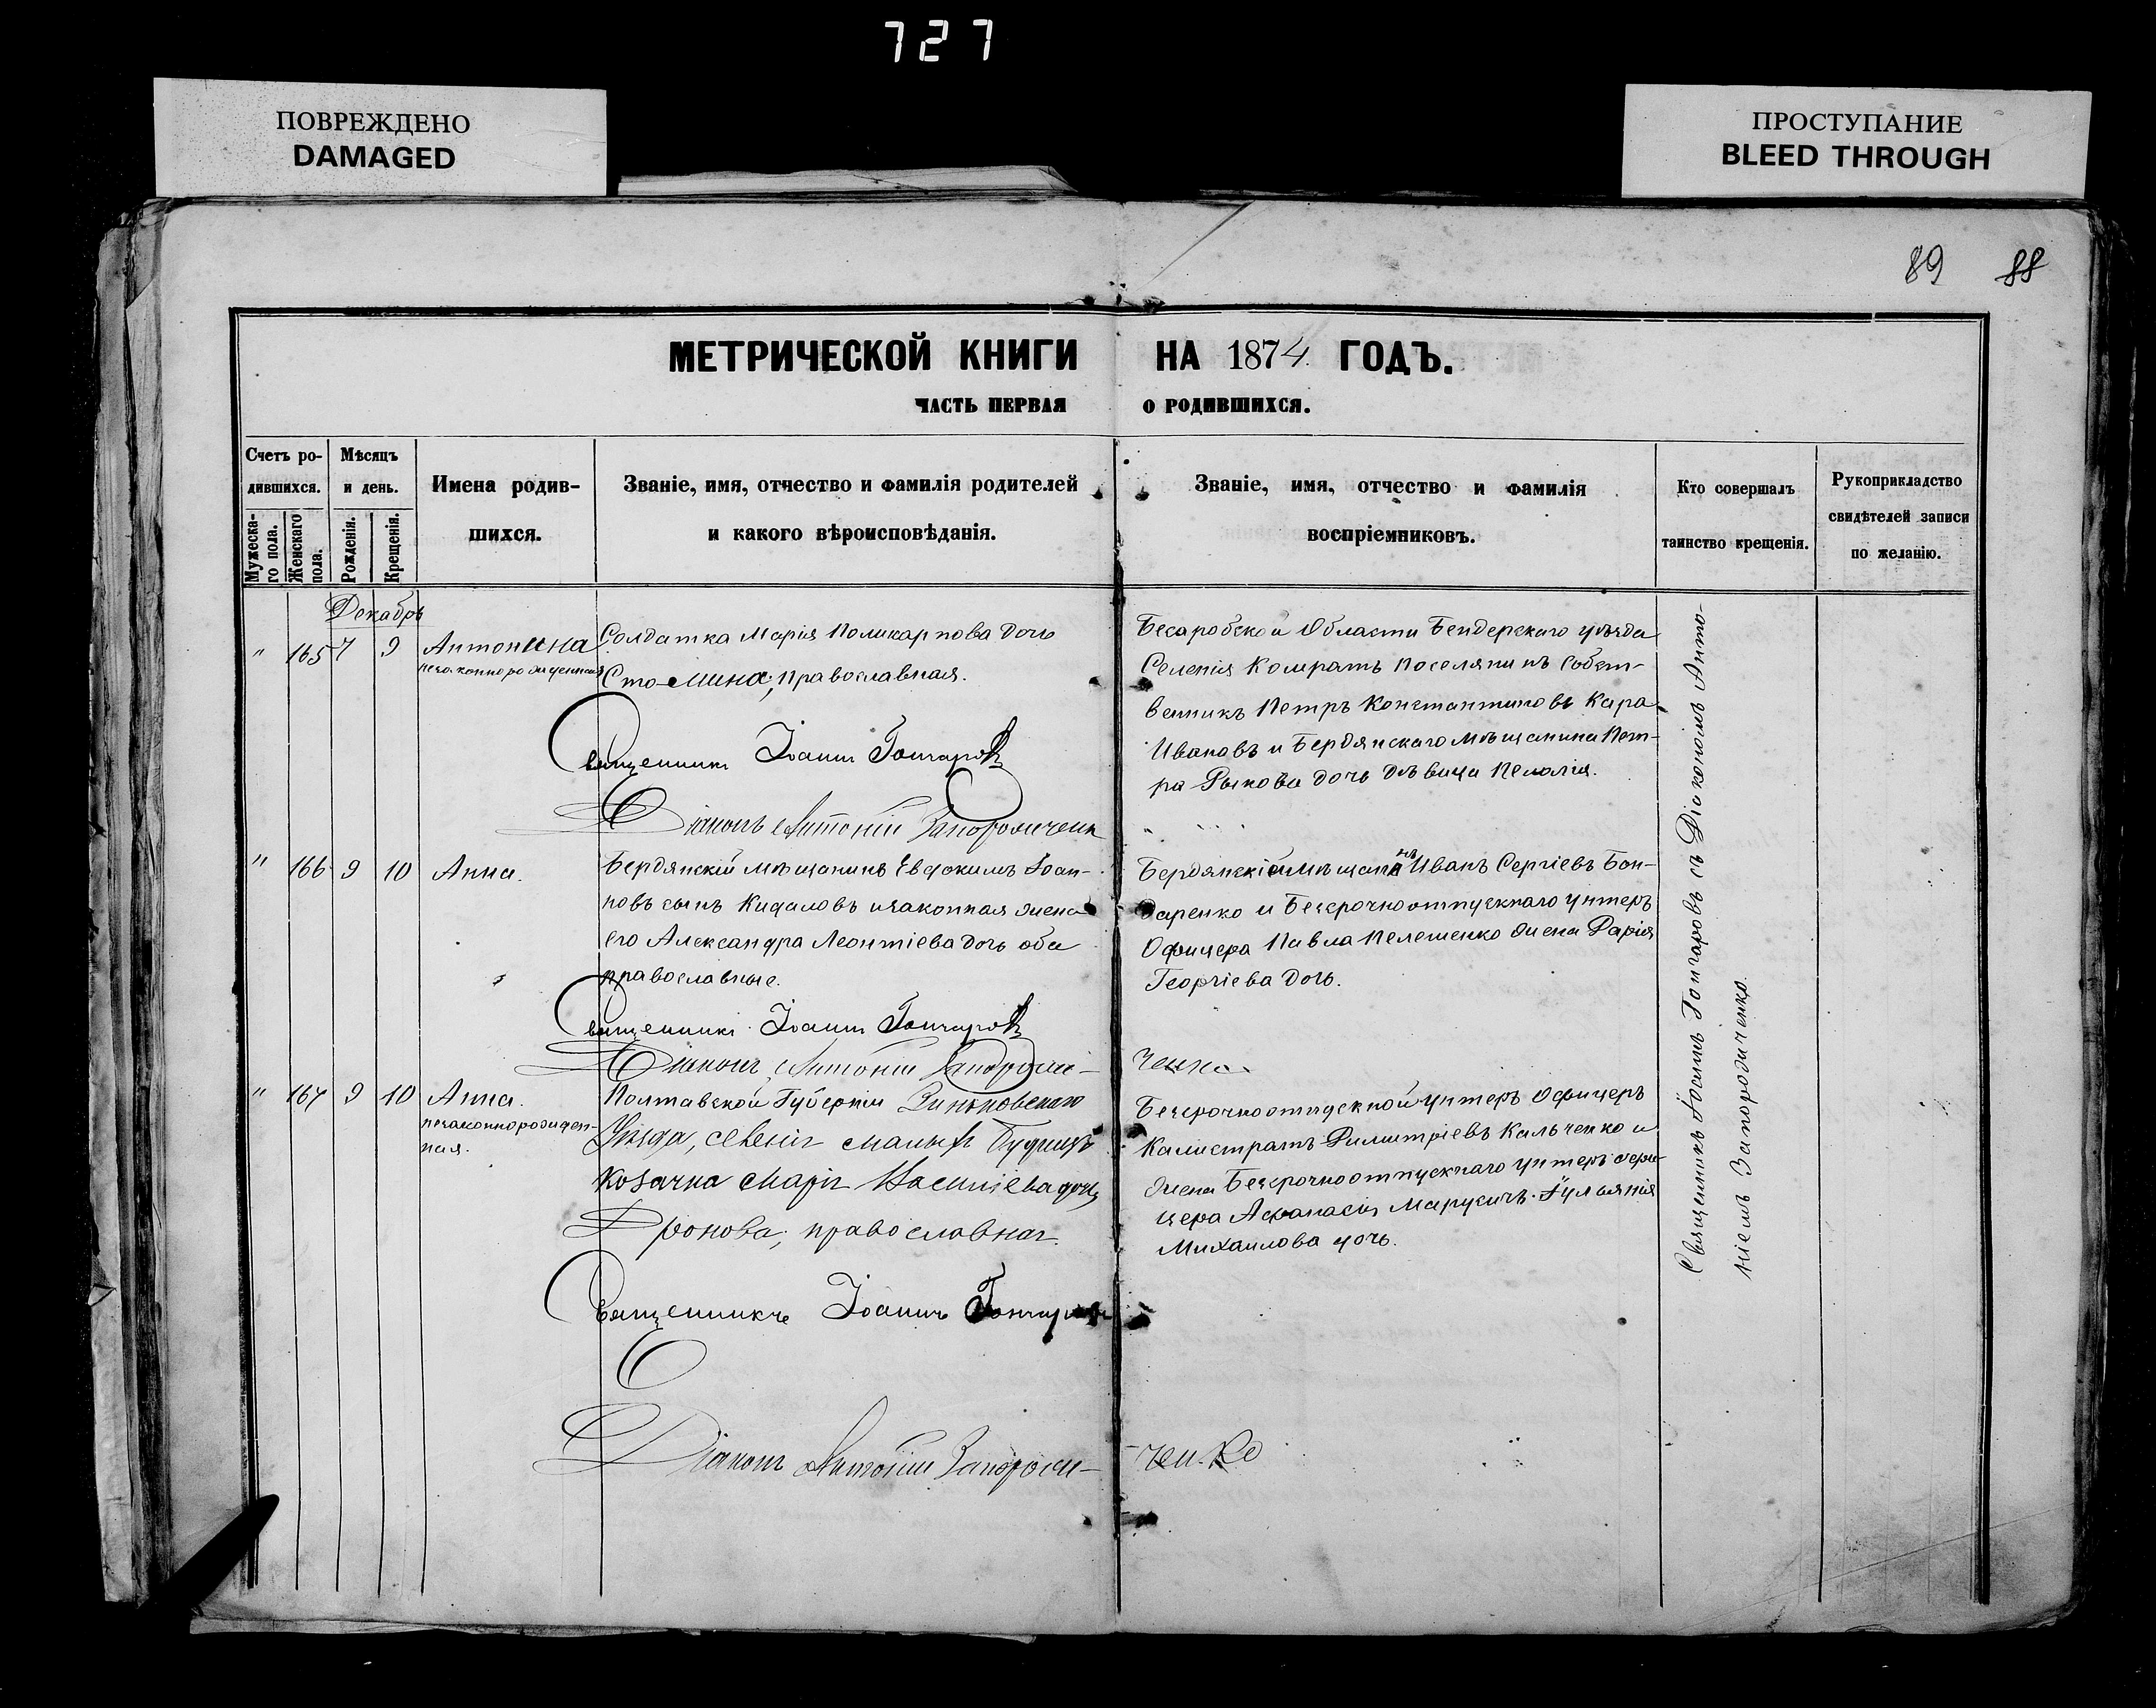 727
ПОВРЕЖДЕНО
DAMAGED
ПРОСТУПАНИЕ
BLEED THROUGH
89 88
МЕТРИЧЕСКОЙ КНИГИ НА 1874 ГОДЪ.
ЧАСТЬ ПЕРВАЯ О РОДИВШИХСЯ.
Счетъ ро-
дившихся.
Мужеска-
го пола.
Женскаго
пола.
Мѣсяцъ
и день.
Рожденія.
Крещенія.
Имена родив-
шихся.
Званіе, имя, отчество и фамилія родителей
и какого вѣроисповѣданія.
Званіе, имя, отчество и фамилія
воспріемниковъ.
Кто совершалъ
таинство крещенія.
Рукоприкладство
свидѣтелей записи
по желанію.
Декабрь
" 165 7 9 Антонина
незаконнорожденная
Солдатка Марія Поликарпова дочь
Сто-мина, православная.
Священникъ Іоаннъ Гончаровъ
Діаконъ Антоній Запорожченк
Бесаробской Области Бендерскаго уѣзда
Селенія Комратъ поселянинъ собст-
венникъ Петръ Константиновъ Кара
Ивановъ и Бердянскаго мѣщанина Пет-
ра Рыкова дочь дѣвица Пелагія.
" 166 9 10 Анна.
Бердянскій мѣщанинъ Евдокимъ Іоан-
новъ сынъ Кидаловъ изаконная жена
его Александра Леонтіева дочь оба
православные.
Священникъ Іоаннъ Гончаровъ
Діаконъ Антоній Запорож-
ченко
Бердянскій мѣщанинъ Иванъ Сергіевъ Бон-
даренко и Безсрочноотпускнаго унтеръ
Офицера Павла Пелешенко жена Дарія
Георгіева дочь.
" 167 9 10 Анна.
незаконнорожден-
ная.
Полтавской Губерніи Зиньковскаго
Уѣзда, селенія малыхъ Будищъ
козачка Марія Василіева дочь
Дронова, православная.
Священникъ Іоаннъ Гончаровъ
Діаконъ Антоній Запорож-
ченко
Безсрочноотпускной унтеръ Офицеръ
Калистратъ Димитріевъ Кальченко и
жена Безсрочноотпускнаго унтеръ офи-
цера Афанасія Марусичъ Іуліянія
Михаилова дочь.
Священникъ Іоаннъ Гончаровъ съ Діакономъ Анто-
ніемъ Запорожченко.